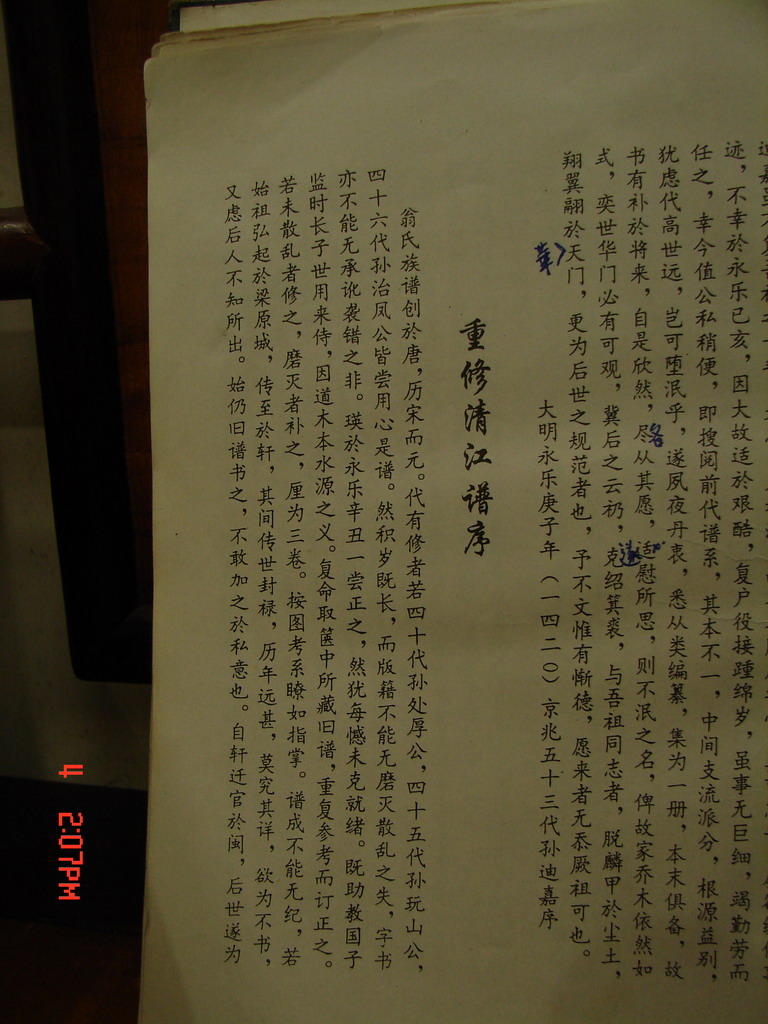 迹，不幸於永乐已亥，因大故适於艰酷，复户役接踵绵岁，虽事无巨细，竭勤劳而
任之，幸今值公私稍便，即搜阅前代谱系，其本不一，中间支流派分，根源益别，
犹虑代高世远，岂可堕泯乎，遂夙夜丹衷，悉从类编纂，集为一册，本末俱备，故
书有补於将来，自是欣然，尽从其愿，适慰所思，则不泯之名，俾故家乔木依然如
式，奕世华门必有可观，冀后之云礽，克绍箕裘，与吾祖同志者，脱麟甲於尘土，
翔翼翮於天门，更为后世之规范者也，予不文惟有惭德，愿来者无忝厥祖可也。
大明永乐庚子年（一四二〇）京兆五十三代孙迪嘉序
重修清江谱序
翁氏族谱创於唐，历宋而元。代有修者若四十代孙处厚公，四十五代孙玩山公，
四十六代孙治凤公皆尝用心是谱。然积岁既长，而版籍不能无磨灭散乱之失，字书
亦不能无承讹袭错之非。瑛於永乐辛丑一尝正之，然犹每憾未克就绪。既助教国子
监时长子世用来侍，因道木本水源之义。复命取箧中所藏旧谱，重复参考而订正之。
若未散乱者修之，磨灭者补之，厘为三卷。按图考系瞭如指掌。谱成不能无纪，若
始祖弘起於梁原城，传至於轩，其间传世封禄，历年远甚，莫究其详，欲为不书，
又虑后人不知所出。始仍旧谱书之，不敢加之於私意也。自轩迁官於闽，后世遂为
4 2:07PM